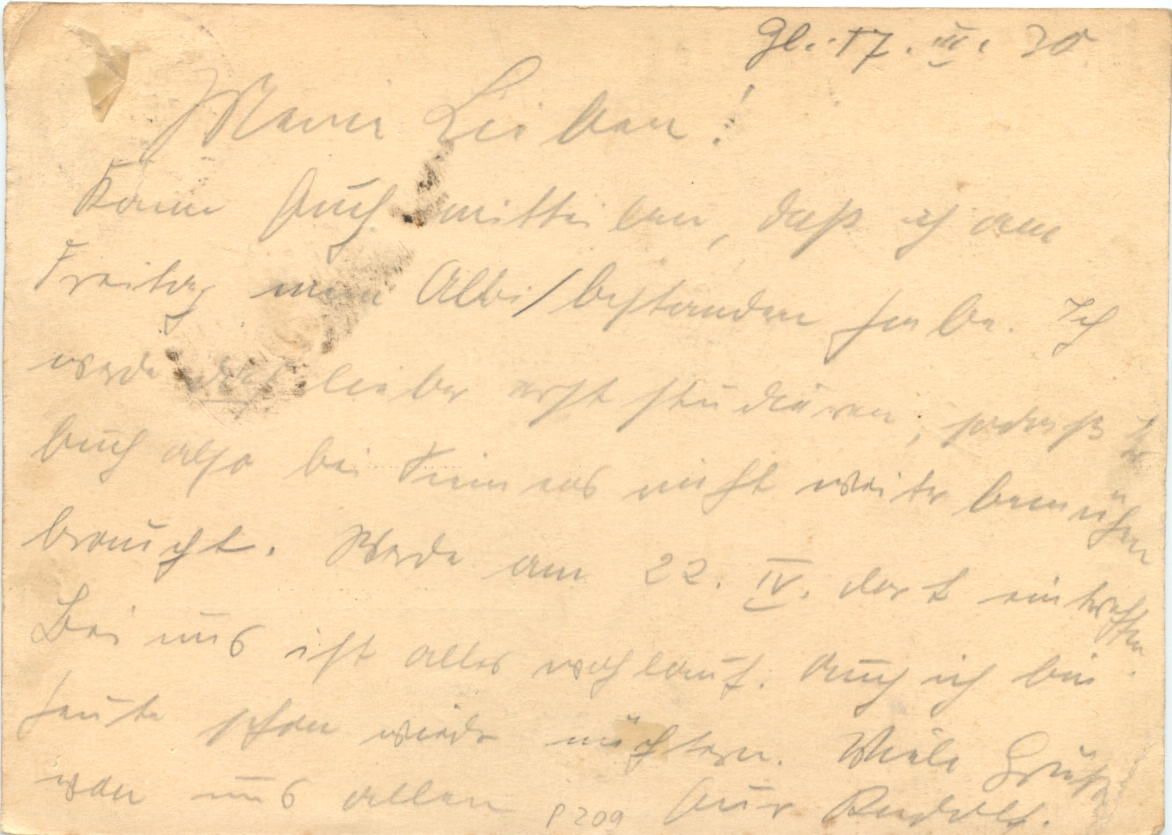 Gl. 17. III. 30.
Meine Lieben!
Kann Euch mitteilen, daß ich am
Freitag mein Abi/bestanden habe. Ich
werde lieber erst studieren, sodaß Ihr
Euch also bei Siemens nicht weiter bemühen
braucht. Werde am 22. IV. dort eintreffen.
Bei uns ist alles wohlauf. Auch ich bin
heute schon wieder nüchtern. Viele Grüße
von uns allen Euer Rudolf.
P209